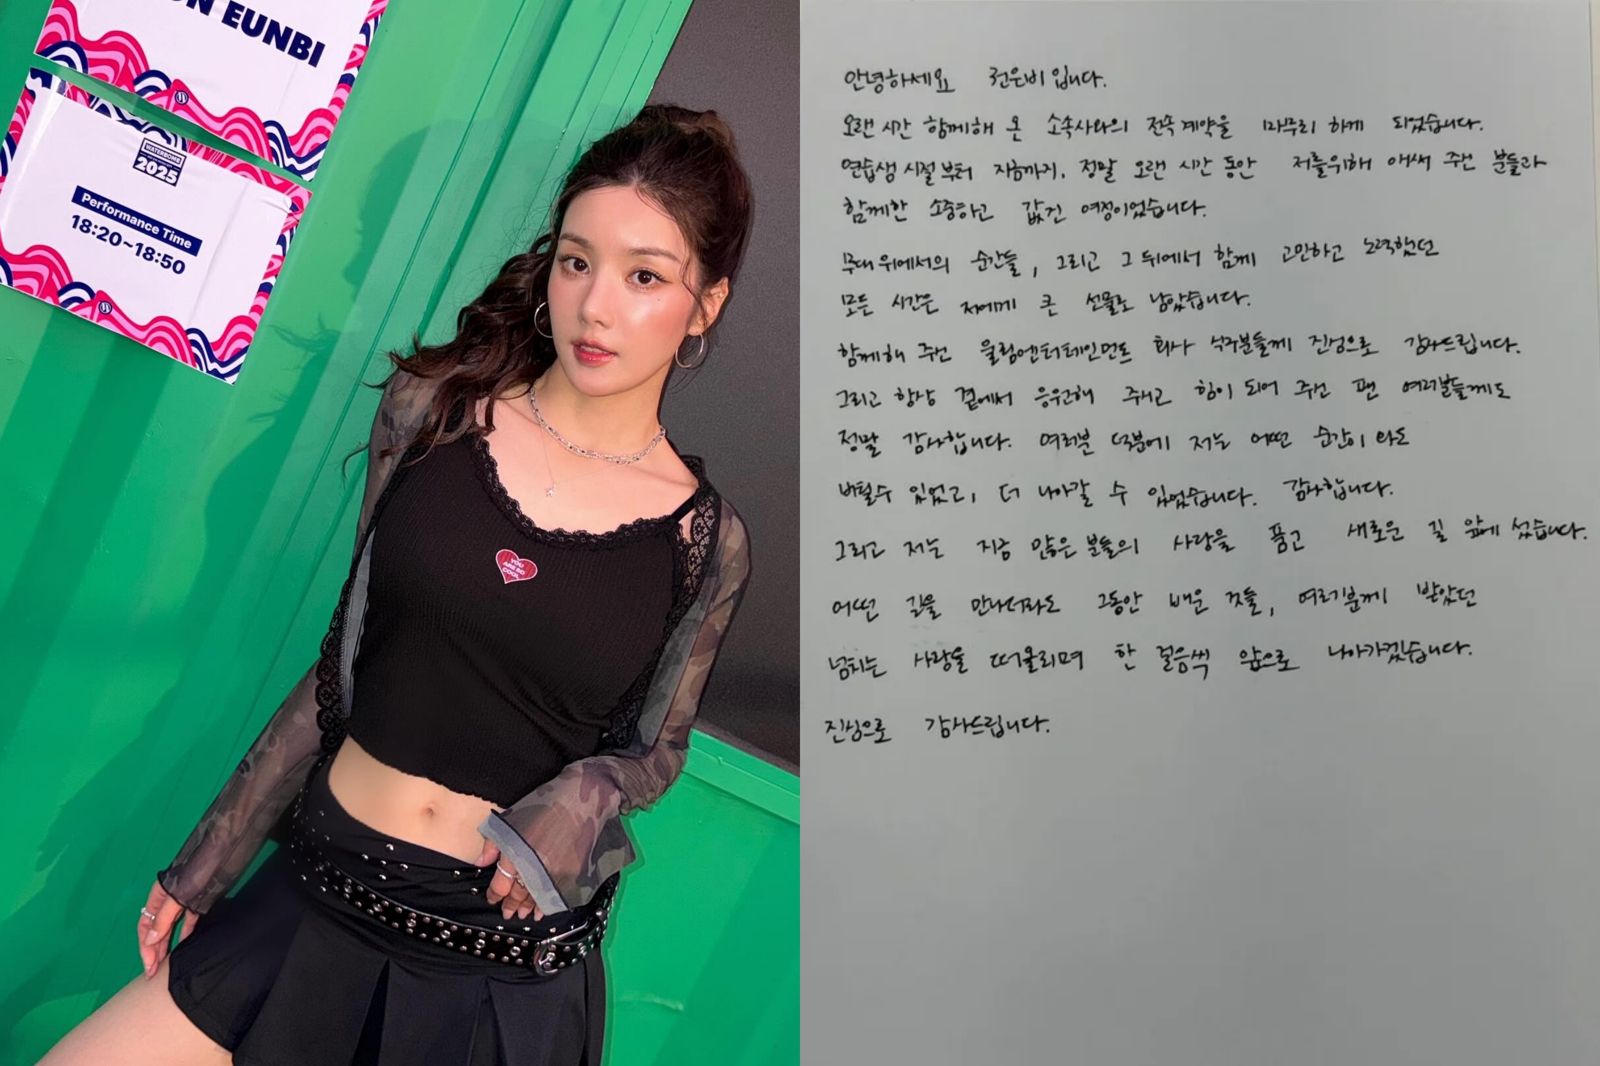 ON EUNBI
WATERBOMB
2025
Performance Time
18:20~18:50
YOU
ARE SO
COOL
안녕하세요 권은비입니다.
오랜 시간 함께해 온 소속사와의 전속계약을 마무리 하게 되었습니다.
연습생 시절부터 지금까지, 정말 오랜 시간 동안 저를위해 애써 주신 분들과
함께한 소중하고 값진 여정이었습니다.
무대 위에서의 순간들, 그리고 그 뒤에서 함께 고민하고 노력했던
모든 시간은 저에게 큰 선물로 남았습니다.
함께해 주신 울림엔터테인먼트 회사 식구분들께 진심으로 감사드립니다.
그리고 항상 곁에서 응원해 주시고 힘이 되어 주신 팬 여러분들께도
정말 감사합니다. 여러분 덕분에 저는 어떤 순간이 와도
버틸수 있었고, 더 나아갈 수 있었습니다. 감사합니다.
그리고 저는 지금 많은 분들의 사랑을 품고 새로운 길 앞에 섰습니다.
어떤 길을 만나더라도 그동안 배운 것들, 여러분께 받았던
넘치는 사랑을 떠올리며 한 걸음씩 앞으로 나아가겠습니다.
진심으로 감사드립니다.